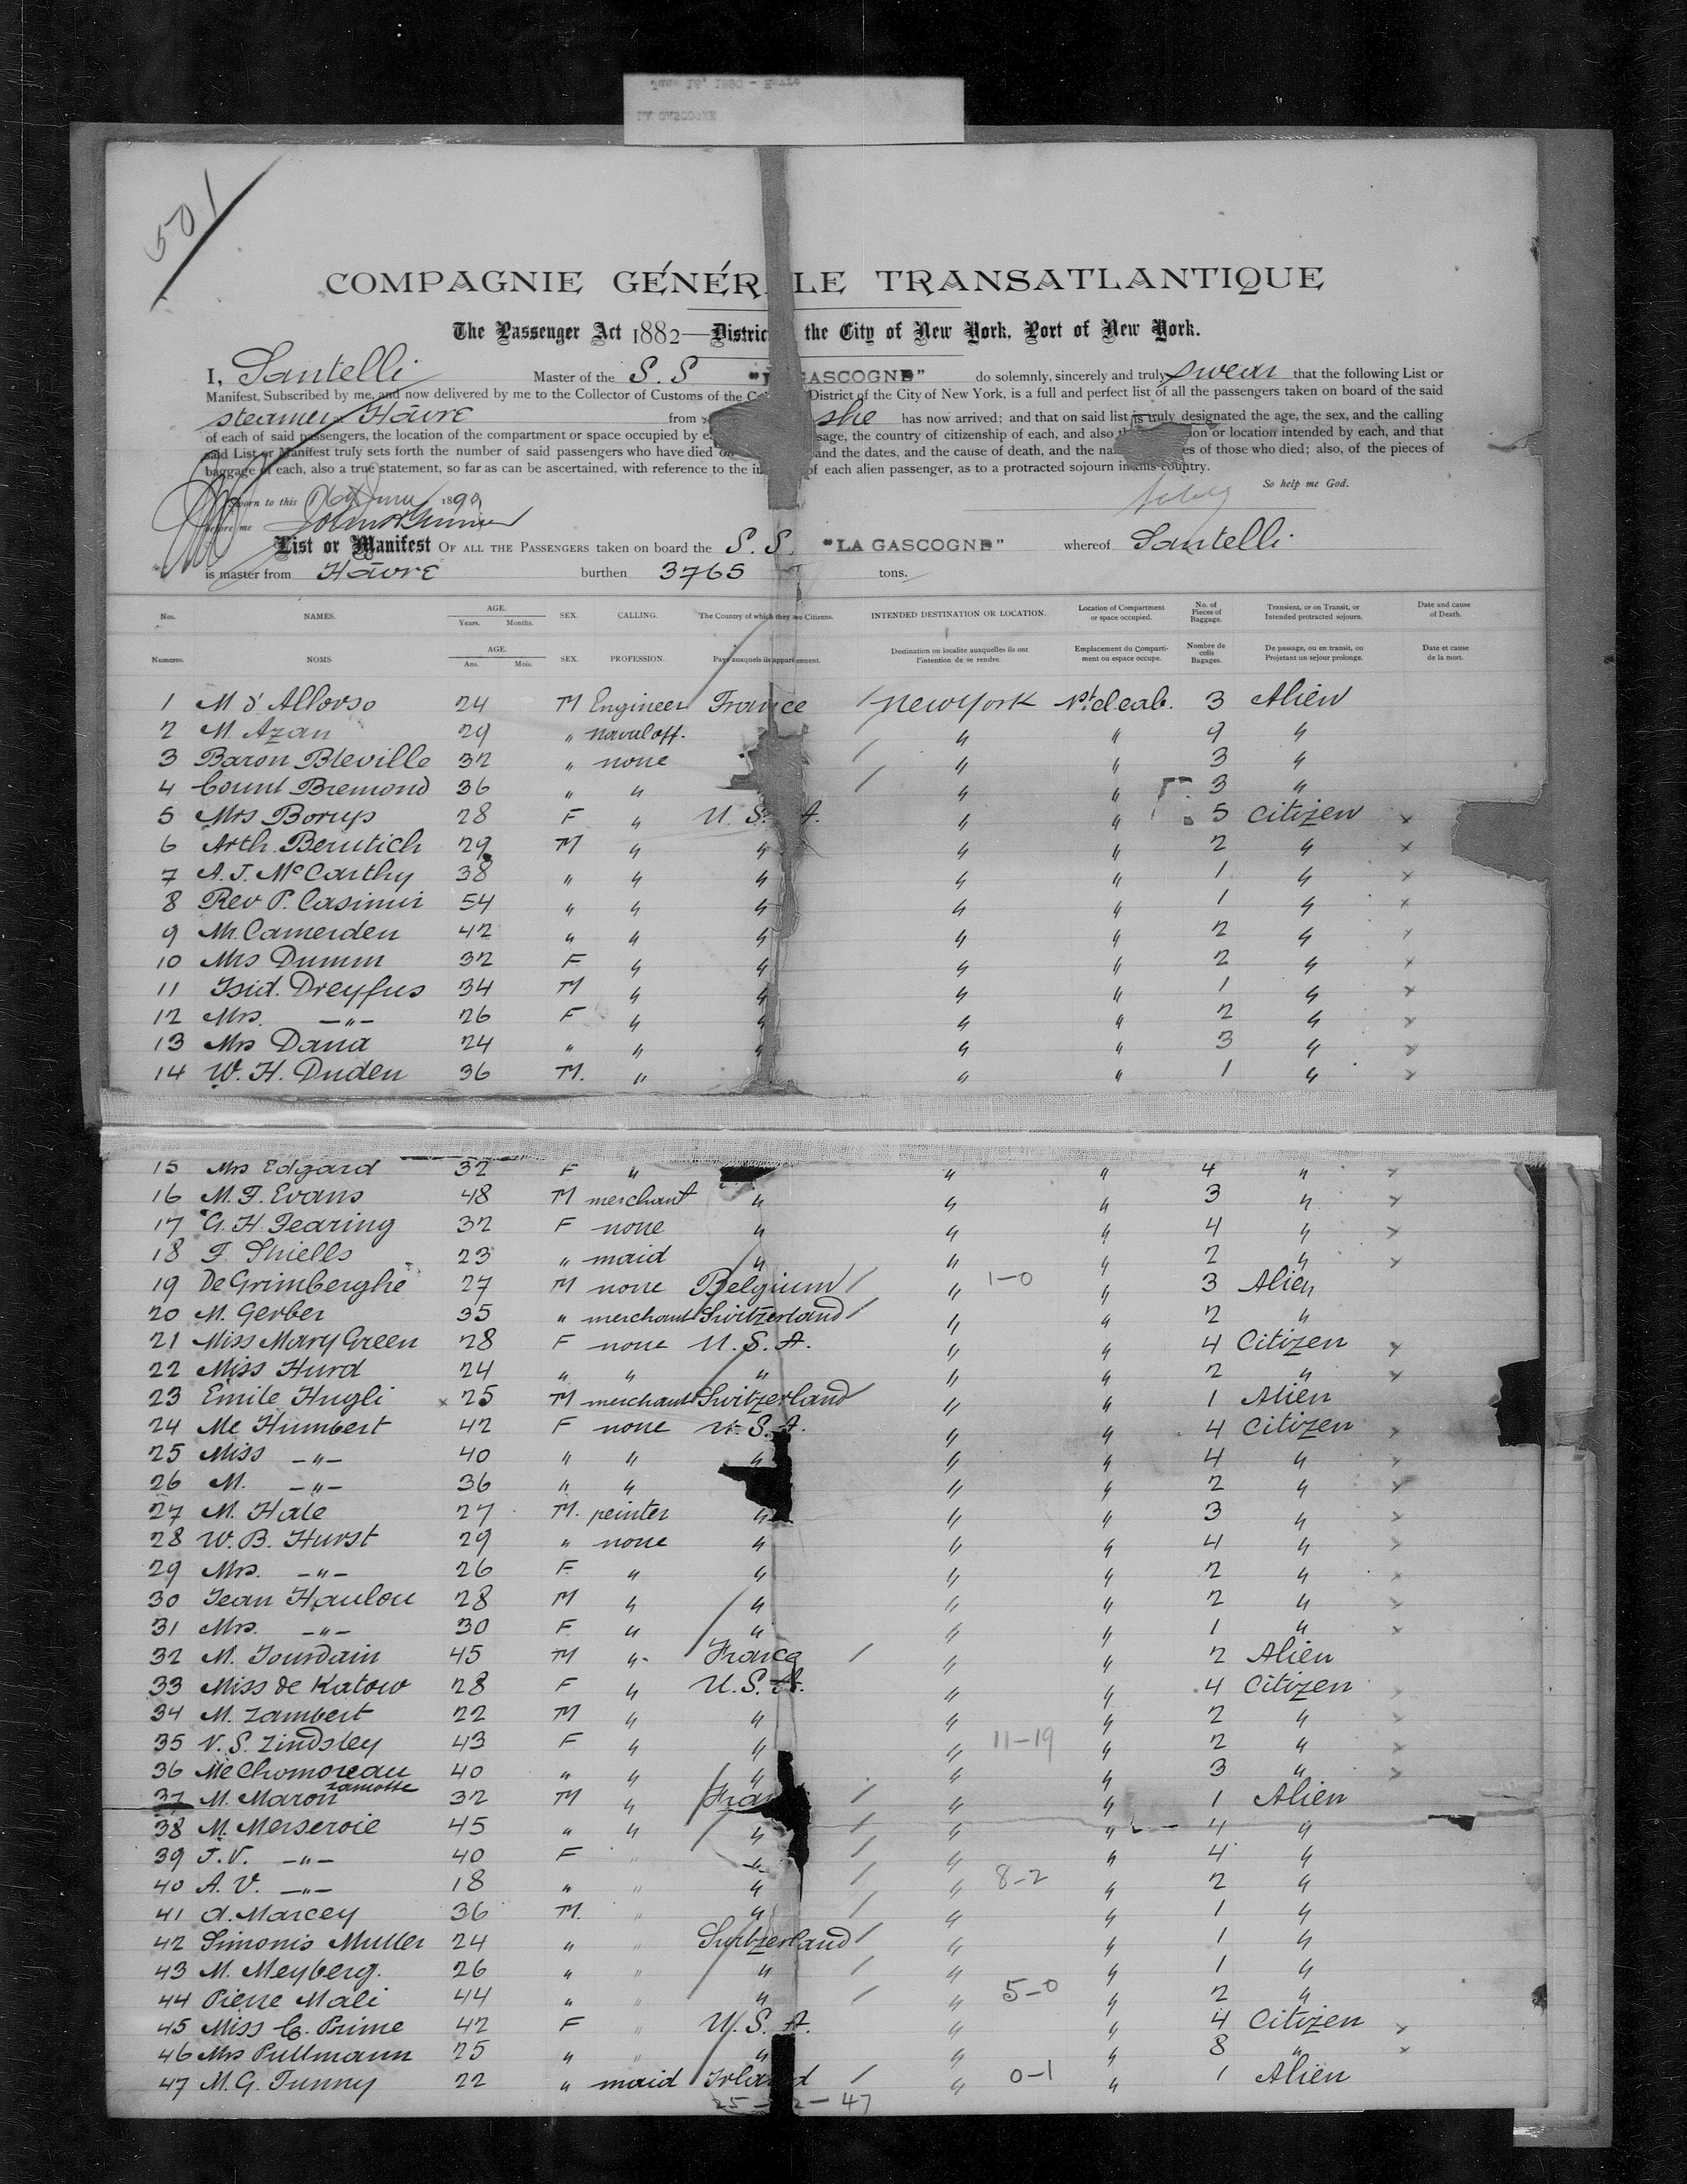 501
COMPAGNIE GÉNÉR LE TRANSATLANTIQUE
The Passenger Act 1882—Distric the City of New York, Port of New York.
I, Santelli Master of the S. S "L GASCOGNE" do solemnly, sincerely and truly swear that the following List or
Manifest, Subscribed by me, and now delivered by me to the Collector of Customs of the Co District of the City of New York, is a full and perfect list of all the passengers taken on board of the said
steamer Hâvre from she has now arrived; and that on said list is truly designated the age, the sex, and the calling
of each of said passengers, the location of the compartment or space occupied by e sage, the country of citizenship of each, and also th ion or location intended by each, and that
said List or Manifest truly sets forth the number of said passengers who have died on and the dates, and the cause of death, and the na es of those who died; also, of the pieces of
baggage of each, also a true statement, so far as can be ascertained, with reference to the in of each alien passenger, as to a protracted sojourn in this country.
So help me God.
Sworn to this June 1899
before me
List or Manifest OF ALL THE PASSENGERS taken on board the S. S. "LA GASCOGNE" whereof Santelli
is master from Hâvre burthen 3765 tons.
Nos. NAMES. AGE. Years. Months. SEX. CALLING. The Country of which they are Citizens. INTENDED DESTINATION OR LOCATION. Location of Compartment or space occupied. No. of Pieces of Baggage. Transient, or on Transit, or Intended protracted sojourn. Date and cause of Death.
Numeros. NOMS AGE. Ans. Mois. SEX. PROFESSION. Pays auxquels ils appartiennent. Destination ou localite auxquelles ils ont l'intention de se rendre. Emplacement du Compartiment ou espace occupe. Nombre de colis Bagages. De passage, ou en transit, ou Projetant un sejour prolonge. Date et cause de la mort.
1 M d'Allorso 24 M Engineer France / New York 3 Alien
2 M Azan 29 " naval off. " " 9 "
3 Baron Bleville 32 " none / " " 3 "
4 Count Bremond 36 " " / " " 3 "
5 Mrs Borup 28 F " U. S. A. " " 5 Citizen x
6 Arth. Berutich 29 M " " " " 2 " x
7 A. J. McCarthy 38 " " " " " 1 " x
8 Rev P. Casimir 54 " " " " " 1 " x
9 Mr. Camerden 42 " " " " " 2 " x
10 Mrs Dumm 32 F " " " " 2 " x
11 Isid. Dreyfus 34 M " " " " 1 " x
12 Mrs. –"– 26 F " " " " 2 " x
13 Mrs Dana 24 " " " " " 3 " x
14 W. H. Duden 36 M. " " " 1 " x
15 Mrs Edgard 32 F " " " 4 " x
16 M. F. Evans 48 M merchant " " " 3 " x
17 G. H. Fearing 32 F none " " " 4 " x
18 F. Shiells 23 " maid " " " 2 " x
19 De Grimberghe 27 M none Belgium / " 1-0 " 3 Alien
20 M. Gerber 35 " merchant Switzerland / " " 2 "
21 Miss Mary Green 28 F none U. S. A. " " 4 Citizen x
22 Miss Hurd 24 " " " " " 2 " x
23 Emile Hugli x 25 M merchant Switzerland / " " 1 Alien
24 Me Humbert 42 F none U. S. A. " " 4 Citizen x
25 Miss –"– 40 " " " " " 4 " x
26 M. –"– 36 " " " " 2 " x
27 M. Hale 27 M. peinter " " " 3 " x
28 W. B. Hurst 29 " none " " " 4 " x
29 Mrs. –"– 26 F " " " " 2 " x
30 Jean Haulou 28 M " " " " 2 " x
31 Mrs. –"– 30 F " " " " 1 " x
32 M. Jourdain 45 M " France / " " 2 Alien
33 Miss de Katow 28 F " U. S. A. " " 4 Citizen x
34 M. Lambert 22 M " " " " 2 " x
35 V. S. Lindsley 43 F " " " 11-19 " 2 " x
36 Me Chomoreau Lamotte 40 " " " " " 3 " x
37 M. Maron 32 M " Fran / " " 1 Alien
38 M. Merseroie 45 " " " / " " 4 "
39 J. V. –"– 40 F " " / " " 4 "
40 A. V. –"– 18 " " " / " 8-2 " 2 "
41 A. Marcey 36 M. " " / " " 1 "
42 Simonis Muller 24 " " Switzerland / " " 1 "
43 M. Meyberg. 26 " " " / " " 1 "
44 Pierre Mali 44 " " " / " 5-0 " 2 "
45 Miss C. Prime 42 F " U. S. A. " " 4 Citizen x
46 Mrs Pullmann 25 " " " " " 8 " x
47 M. G. Tunny 22 " maid Irland / " 0-1 " 1 Alien
25 – 2 – 47